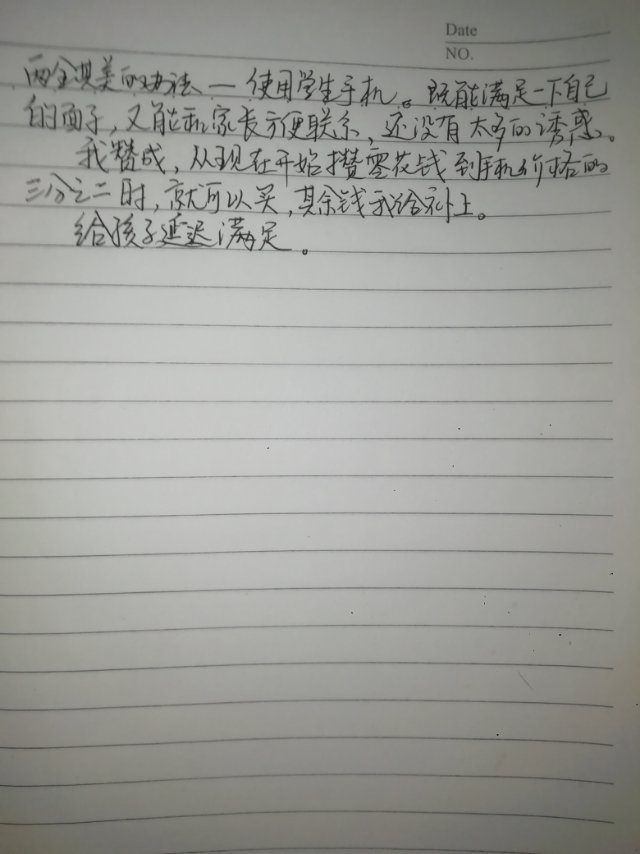 Date
NO.
两全其美的办法 — 使用学生手机。既能满足一下自己
的面子，又能和家长方便联系，还没有太多的诱惑。
我赞成，从现在开始攒零花钱到手机价格的
三分之二时，就可以买，其余钱我给补上。
给孩子延迟满足。